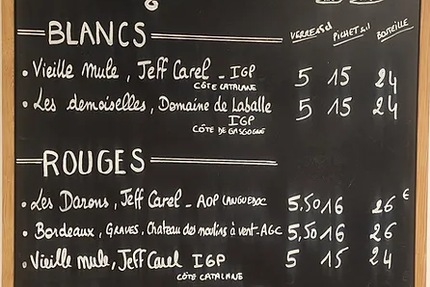 BLANCS VERRE PICHET BOUTEILLE
• Vieille mule, Jeff Carel - IGP 5 15 24
CÔTE CATALANE
• Les demoiselles, Domaine de Laballe 5 15 24
IGP
CÔTE DE GASCOGNE
ROUGES
• Les Darons, Jeff Carel - AOP LANGUEDOC 5,50 16 26 €
• Bordeaux, GRAVES, Chateau des moulins à vent - AGC 5,50 16 26
• Vieille mule, Jeff Carel IGP 5 15 24
CÔTE CATALANE